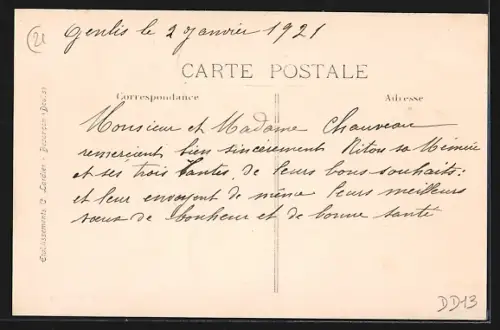 (21
Genlis le 2 Janvier 1921
CARTE POSTALE
Correspondance
Adresse
Monsieur et Madame Chauveau
remercient bien sincèrement Ritou sa Mémée
et ses trois Tantes, de leurs bons souhaits;
et leur envoyent de même leurs meilleurs
vœux de bonheur et de bonne santé
Etablissements C. Lardier - Besançon (Doubs)
DD13